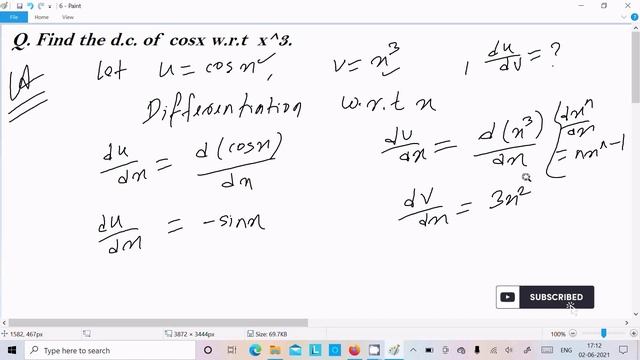 6 - Paint
File Home View
Q. Find the d.c. of cosx w.r.t x^3.
Let u = cosx, v = x^3, du/dv = ?
Differentiation w.r.t x
du/dx = d(cosx)/dx
dv/dx = d(x^3)/dx
dx^n/dx = nx^n-1
du/dx = -sinx
dv/dx = 3x^2
SUBSCRIBED
1582, 467px 3872 × 3444px Size: 69.7KB 100%
Type here to search ENG 17:12
02-06-2021